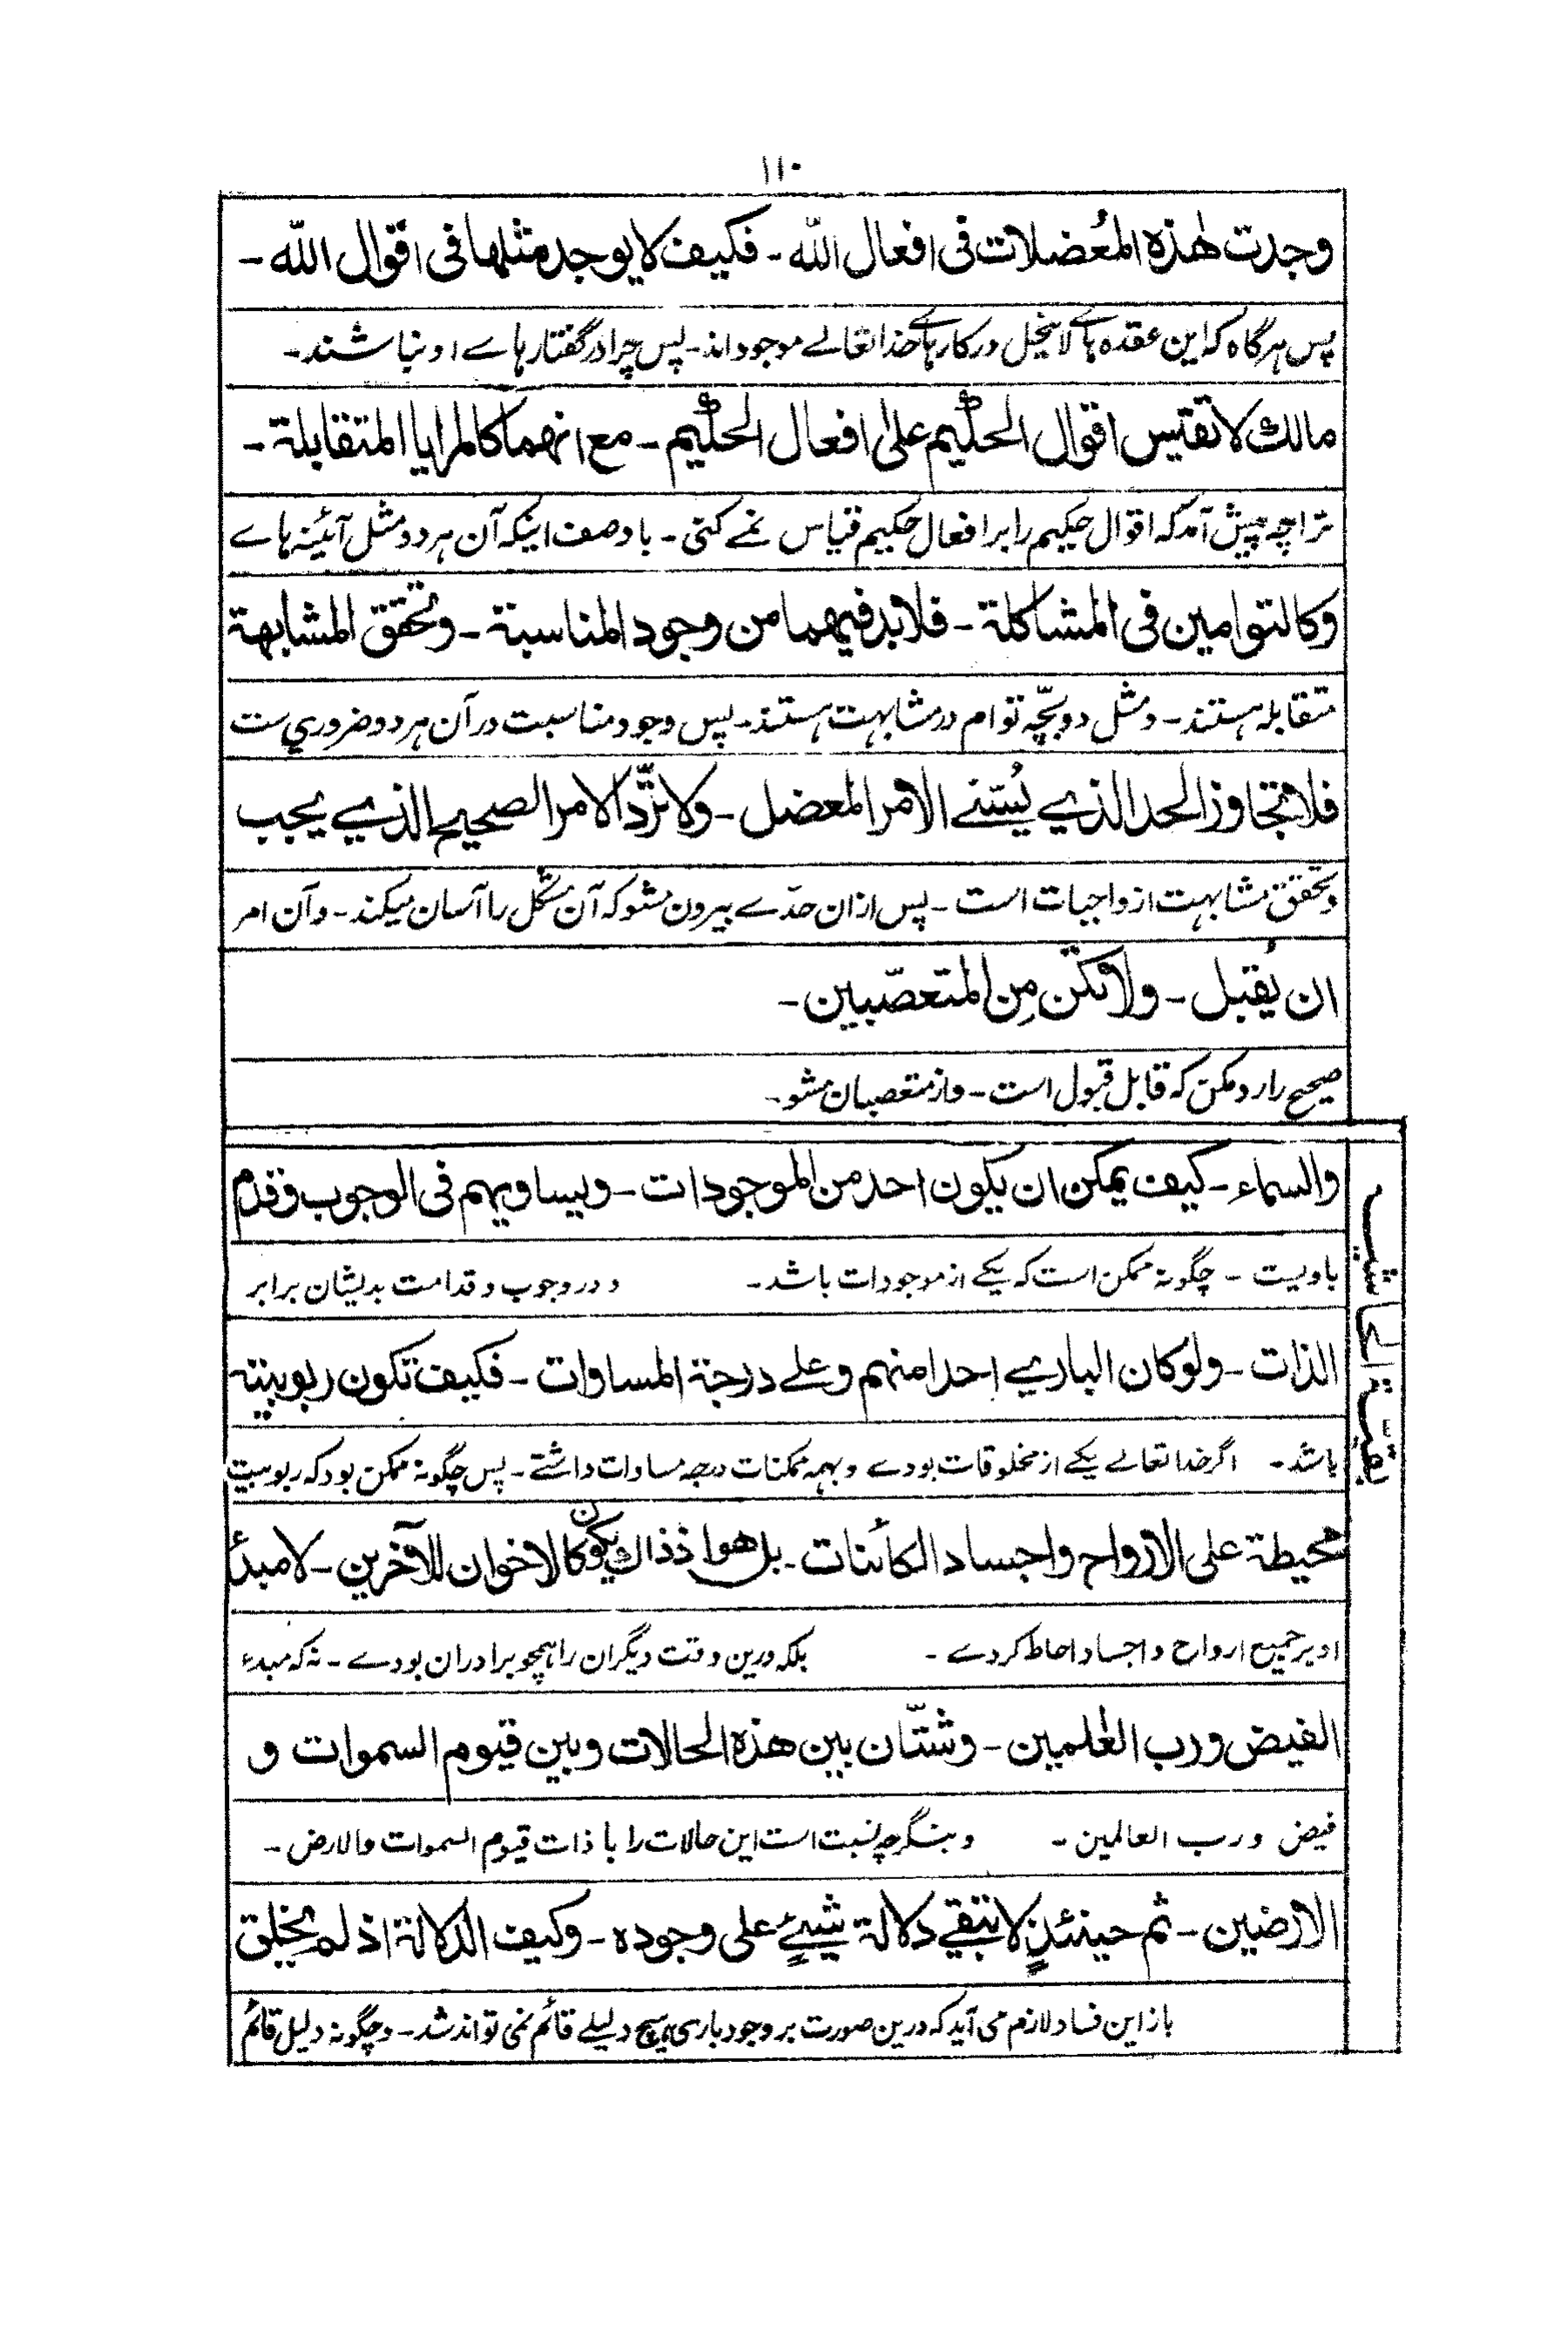 ۱۱۰
وجدت هٰذه المُعضلات فى افعال اللّٰه۔ فكيف لا يوجد مثلها فى اقوال اللّٰه۔
پس ہرگاہ کہ این عقدہ ہائے لاینحل در کارہائے خدا تعالے موجود اند۔ پس چرا در گفتارہاے او نباشند۔
مالك لا تقتیس اقوال الحكيم علىٰ افعال الحكيم۔ مع انهما كالمرايا المتقابلة۔
ترا چہ پیش آمد کہ اقوال حکیم را بر افعال حکیم قیاس نمے کنی۔ با وصف اینکہ آن ہر دو مثل آئینہ ہاے
وكالتوامين فى المشاكلة۔ فلا بد فيهما من وجود المناسبة۔ وتحقق المشابهة
متقابلہ ہستند۔ و مثل دو بچّہ توام در مشابہت ہستند۔ پس وجود مناسبت در آن ہر دو ضروری ست
فلا تجاوز الحد الذي يُسَنّے الامر المعضل۔ ولا تردّ الامر الصحيح الذي يجب
و تحقق مشابہت از واجبات است۔ پس ازان حدّے بیرون مشو کہ آن مشکل را آسان میکند۔ و آن امر
ان يُقبل۔ ولا تكن مِن المتعصّبين۔
صحیح را رد مکن کہ قابل قبول است۔ و از متعصبان مشو۔
بقیّۃ الحاشیہ
والسماء۔ كيف يمكن ان يكون احد من الموجودات۔ ويساويهم فى الوجوب وقدم
باویست۔ چگونہ ممکن است کہ یکے از موجودات باشد۔ و در وجوب و قدامت بدیشان برابر
الذات۔ ولو كان الباري احدا منهم وعلے درجة المساوات۔ فكيف تكون ربوبيته
باشد۔ اگر خدا تعالے یکے از مخلوقات بودے و بہمہ ممکنات درجہ مساوات داشتے۔ پس چگونہ ممکن بود کہ ربوبیت
محيطة على الارواح واجساد الكائنات۔ بل هو اذ ذاك يكون كالاخوان للآخرين۔ لا مبدأ
او بر جمیع ارواح و اجساد احاطہ کردے۔ بلکہ درین وقت دیگران را ہمچو برادران بودے۔ نہ کہ مبدء
الفيض ورب العٰلمين۔ وشتّان بين هذه الحالات وبين قيوم السموات و
فیض و رب العالمین۔ و بنگر چہ نسبت است این حالات را با ذات قیوم السموات والارض۔
الارضين۔ ثم حينئذٍ لا تبقے دلالة شيئٍ على وجوده۔ وكيف الدلالة اذ لم يخلق
باز این فساد لازم می آید کہ درین صورت بر وجود باری ہیچ دلیلے قائم نمی تواند شد۔ و چگونہ دلیل قائم